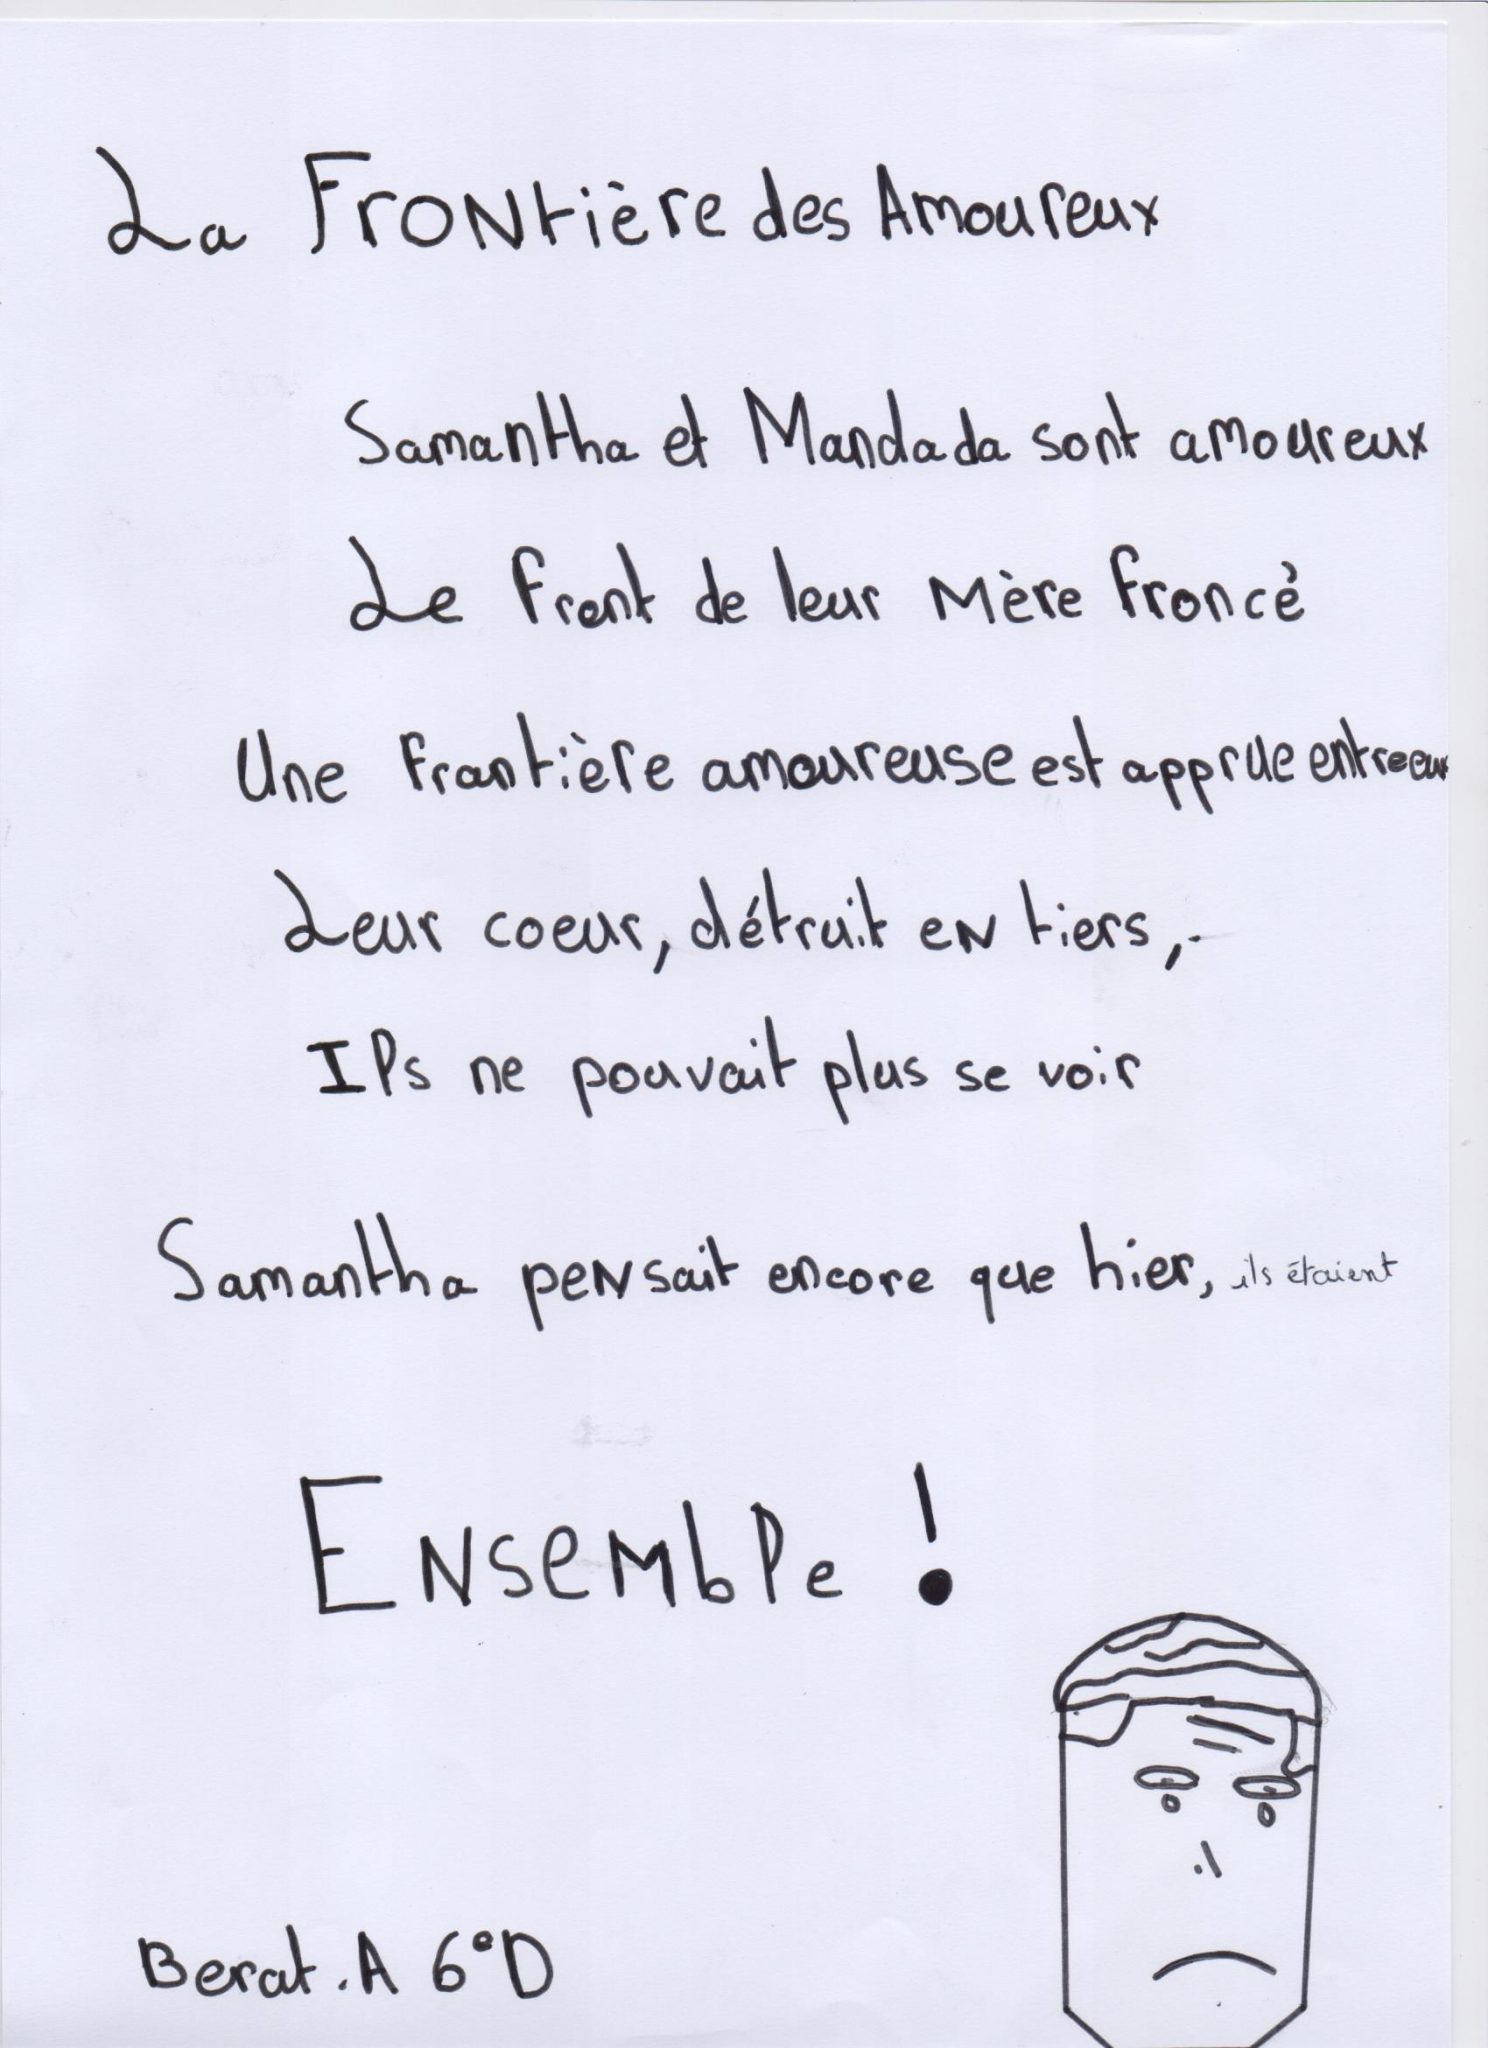 La Frontière des Amoureux
Samantha et Mandada sont amoureux
Le front de leur mère froncé
Une frantière amoureuse est apprue entre eux
Leur coeur, détruit en tiers,
Ils ne pouvait plus se voir
Samantha pensait encore que hier, ils étaient
Ensemble !
Berat.A 6°D